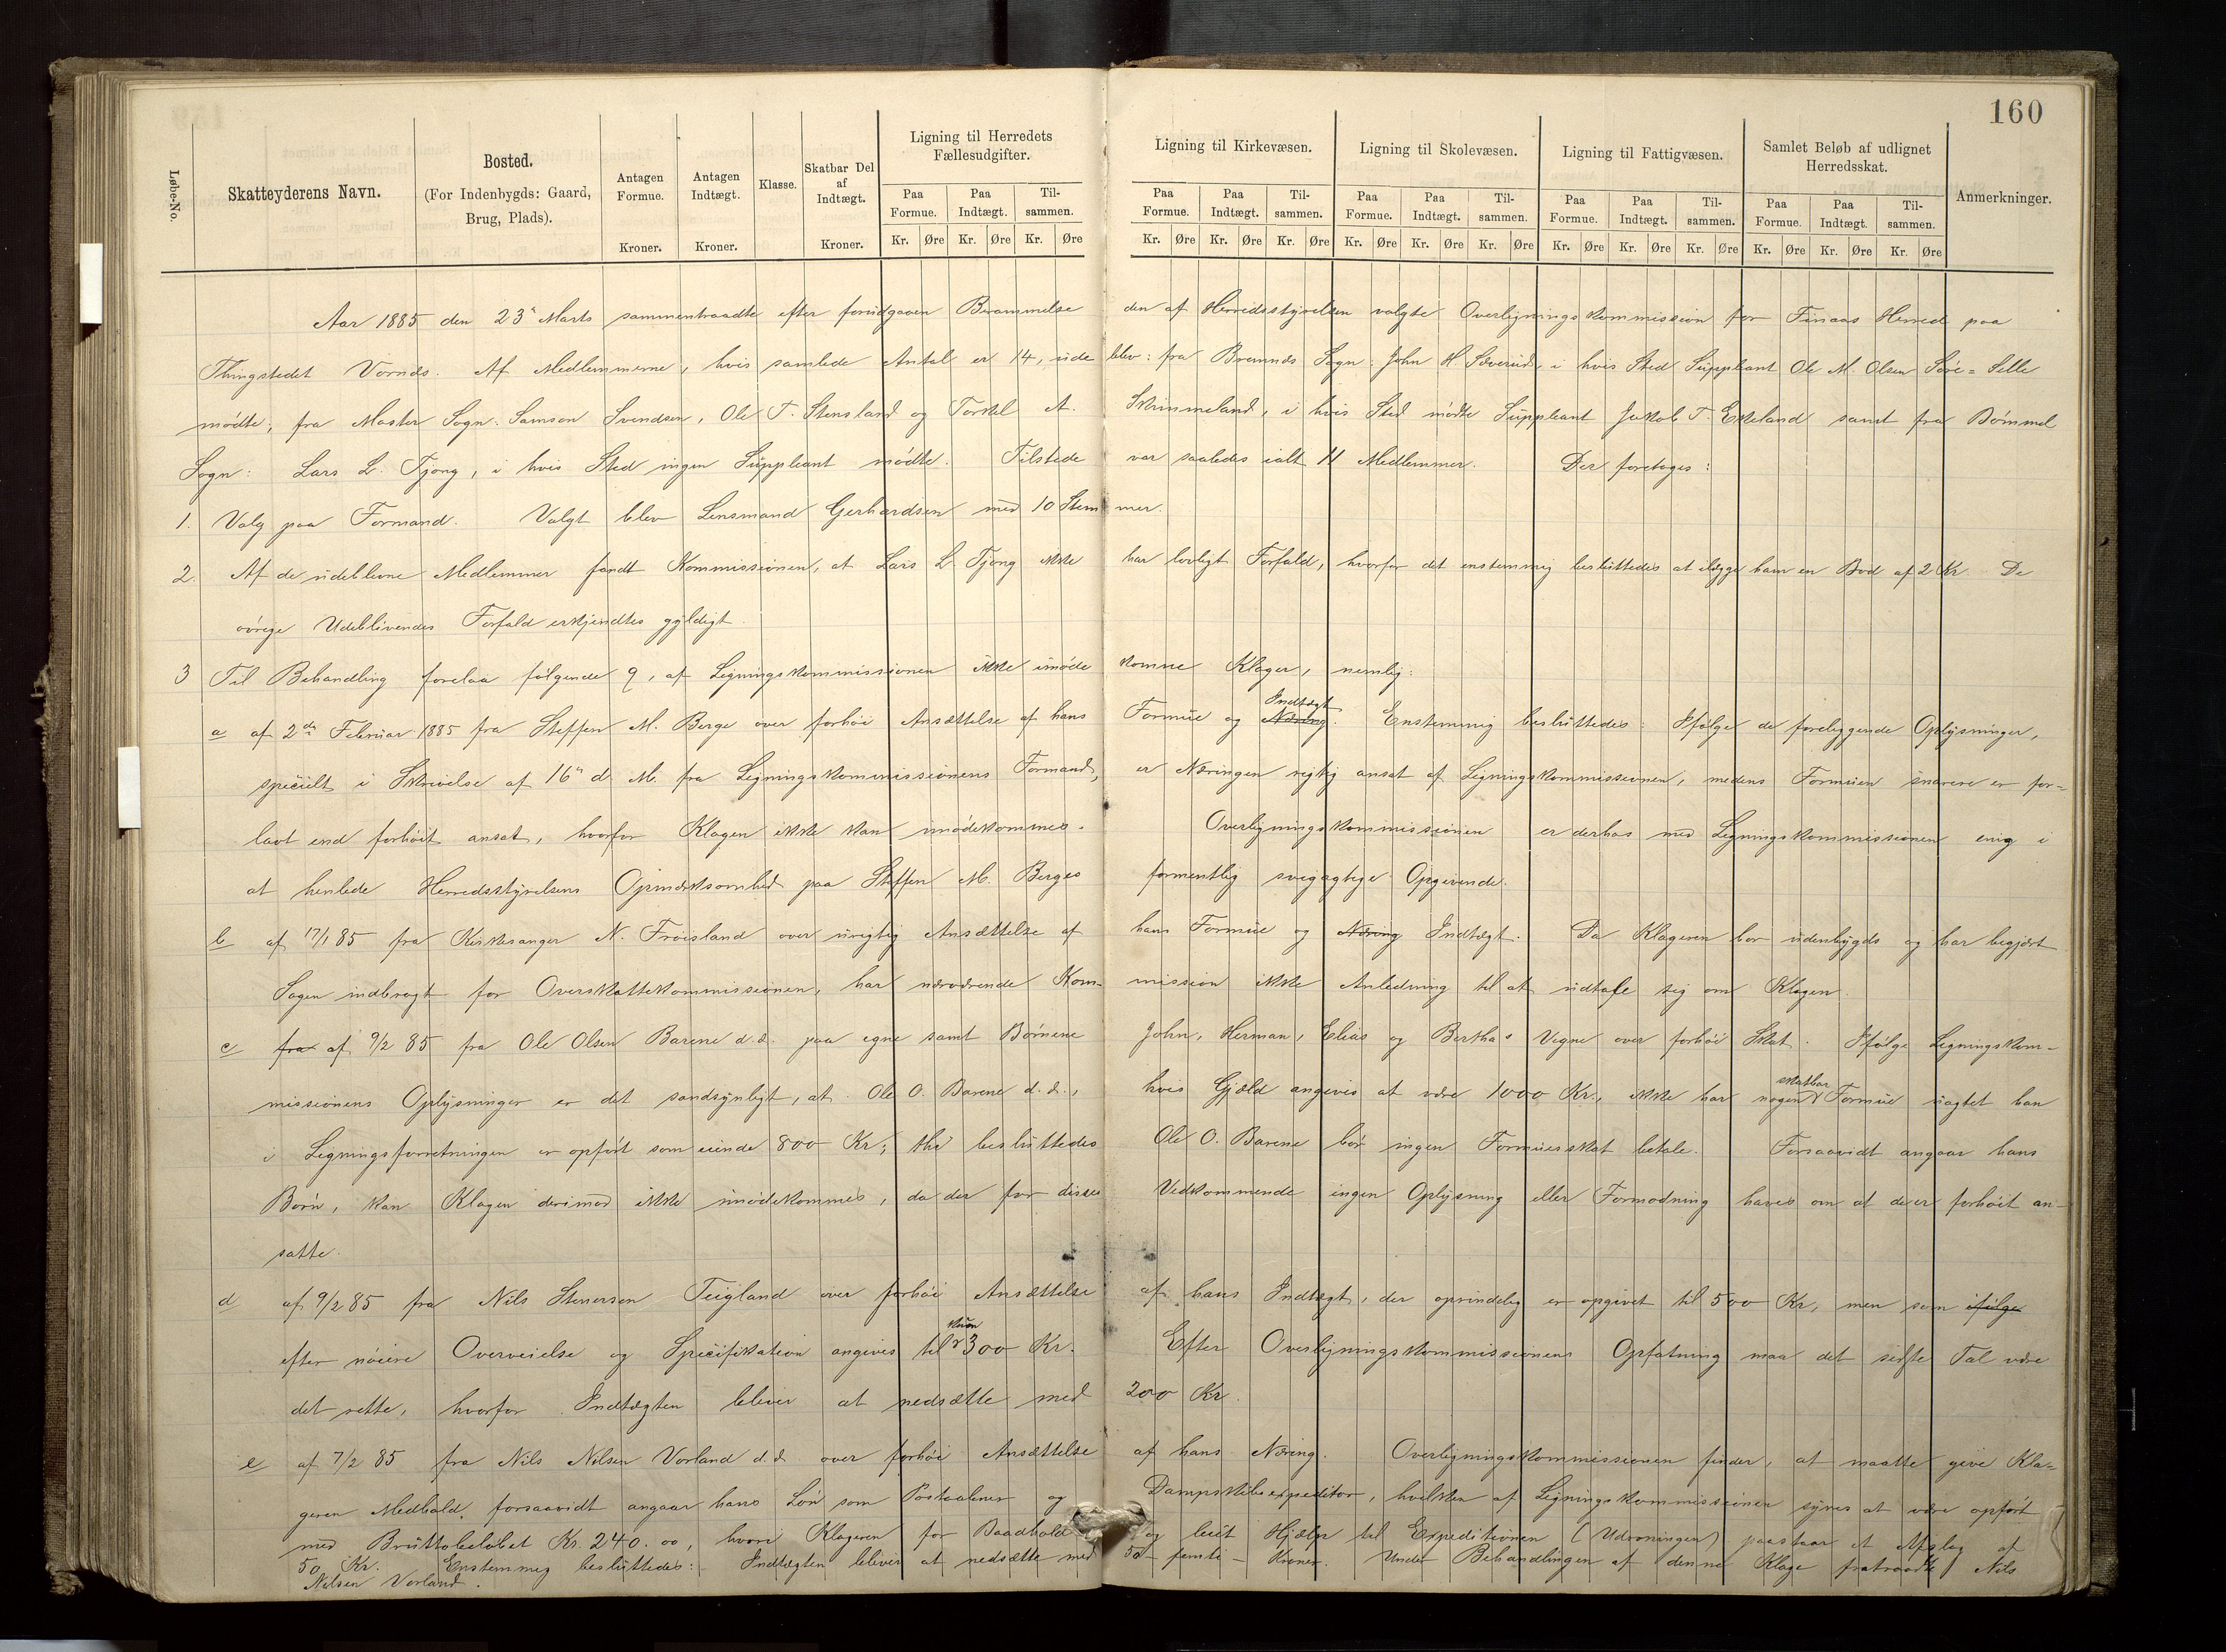 160
Løbe-No.
Skatteyderens Navn.
Bosted.
(For Indenbygds: Gaard,
Brug, Plads).
Antagen
Formue.
Kroner.
Antagen
Indtægt.
Kroner.
Klasse.
Skatbar Del
af
Indtægt.
Kroner.
Ligning til Herredets
Fællesudgifter.
Ligning til Kirkevæsen.
Ligning til Skolevæsen.
Ligning til Fattigvæsen.
Samlet Beløb af udlignet
Herredsskat.
Anmerkninger.
Paa Formue. Paa Indtægt. Tilsammen. Paa Formue. Paa Indtægt. Tilsammen. Paa Formue. Paa Indtægt. Tilsammen. Paa Formue. Paa Indtægt. Tilsammen. Paa Formue. Paa Indtægt. Tilsammen.
Kr. Øre Kr. Øre Kr. Øre Kr. Øre Kr. Øre Kr. Øre Kr. Øre Kr. Øre Kr. Øre Kr. Øre Kr. Øre Kr. Øre Kr. Øre Kr. Øre Kr. Øre
Aar 1885 den 23de Marts sammentraadte efter forudgaaen Berammelse den af Herredsstyrelsen valgte Overligningskommission for Finaas Herred paa
Thingstedet Vornæs. Af Medlemmerne, hvis samlede Antal er 14, udeblev: fra Bremnæs Sogn: John H. Sæverud, i hvis Sted Suppleant Ole M. Olsen Søre=Selle
mødte; fra Moster Sogn: Samson Svendsen, Ole T. Stensland og Torkel A. Skimmeland, i hvis Sted mødte Suppleant Jakob T. Ekeland samt fra Bømmel
Sogn: Lars L. Tjong, i hvis Sted ingen Suppleant mødte. Tilstede var saaledes ialt 11 Medlemmer. Der foretoges:
1. Valg paa Formand. Valgt blev Lensmand Gerhardsen med 10 Stemmer.
2. Af de udeblevne Medlemmer fandt Kommissionen, at Lars L. Tjong ikke har lovligt Forfald, hvorfor det enstemmig besluttedes at ilægge ham en Bod af 2 Kr. De
øvrige Udeblivendes Forfald erkjendtes gyldigt.
3 Til Behandling forelaa følgende 9, af Ligningskommissionen ikke imødekomne Klager, nemlig:
a af 2den Februar 1885 fra Steffen M. Berge over forhøi Ansættelse af hans Formue og Næring Indtægt. Enstemmig besluttedes: Ifølge de foreliggende Oplysninger,
specielt i Skrivelse af 16de d. M. fra Ligningskommissionens Formand, er Næringen rigtig ansat af Ligningskommissionen, medens Formuen snarere er for=
lavt end forhøit ansat, hvorfor Klagen ikke kan imødekommes. Overligningskommissionen er derhos med Ligningskommissionen enig i
at henlede Herredsstyrelsens Opmærksomhed paa Steffen M. Berges formentlig svigagtige Opgivende.
b af 17/1 85 fra Kirkesanger N. Frøisland over urigtig Ansættelse af hans Formue og Næring Indtægt. Da Klageren bor udenbygds og har begjært
Sagen indbragt for Overskattekommissionen, har nærværende Kommission ikke Anledning til at udtale sig om Klagen.
c fra af 9/2 85 fra Ole Olsen Barene d.æ. paa egne samt Børnene John, Herman, Elias og Berthas Vegne over forhøi Skat. Ifølge Ligningskom=
missionens Oplysninger er det sandsynligt, at Ole O. Barene d.æ., hvis Gjæld angives at være 1000 Kr., ikke har nogen skatbar Formue uagtet han
i Ligningsforretningen er opført som eiende 800 Kr; thi besluttedes Ole O. Barene bør ingen Formuesskat betale. Forsaavidt angaar hans
Børn, kan Klagen derimod ikke imødekommes, da der for disses Vedkommende ingen Oplysning eller Formodning haves om at de er forhøit an-
satte.
d af 9/2 85 fra Nils Stenersen Teigland over forhøi Ansættelse af hans Indtægt, der oprindelig er opgivet til 500 Kr, men som ifølge
efter nøiere Overveielse og Specifikation angives til kun 300 Kr. Efter Overligningskommissionens Opfatning maa det sidste Tal være
det rette, hvorfor Indtægten bliver at nedsætte med 200 Kr.
e af 7/2 85 fra Nils Nilsen Vorland d.æ. over forhøi Ansættelse af hans Næring. Overligningskommissionen finder, at maatte give Kla=
geren Medhold, forsaavidt angaar hans Løn som Postaabner og Dampskibsexpeditør, hvilken af Ligningskommissionen synes at være opført
med Bruttobeløbet Kr. 240.00, hvori Klageren for Baadhold og leiet Hjælp til Expeditionen (Udroningen) paastaar et Afslag af
50 Kr. Enstemmig besluttedes: Indtægten bliver at nedsætte med 50 - femti - Kroner. Under Behandlingen af denne Klage fratraadte Nils
Nilsen Vorland.